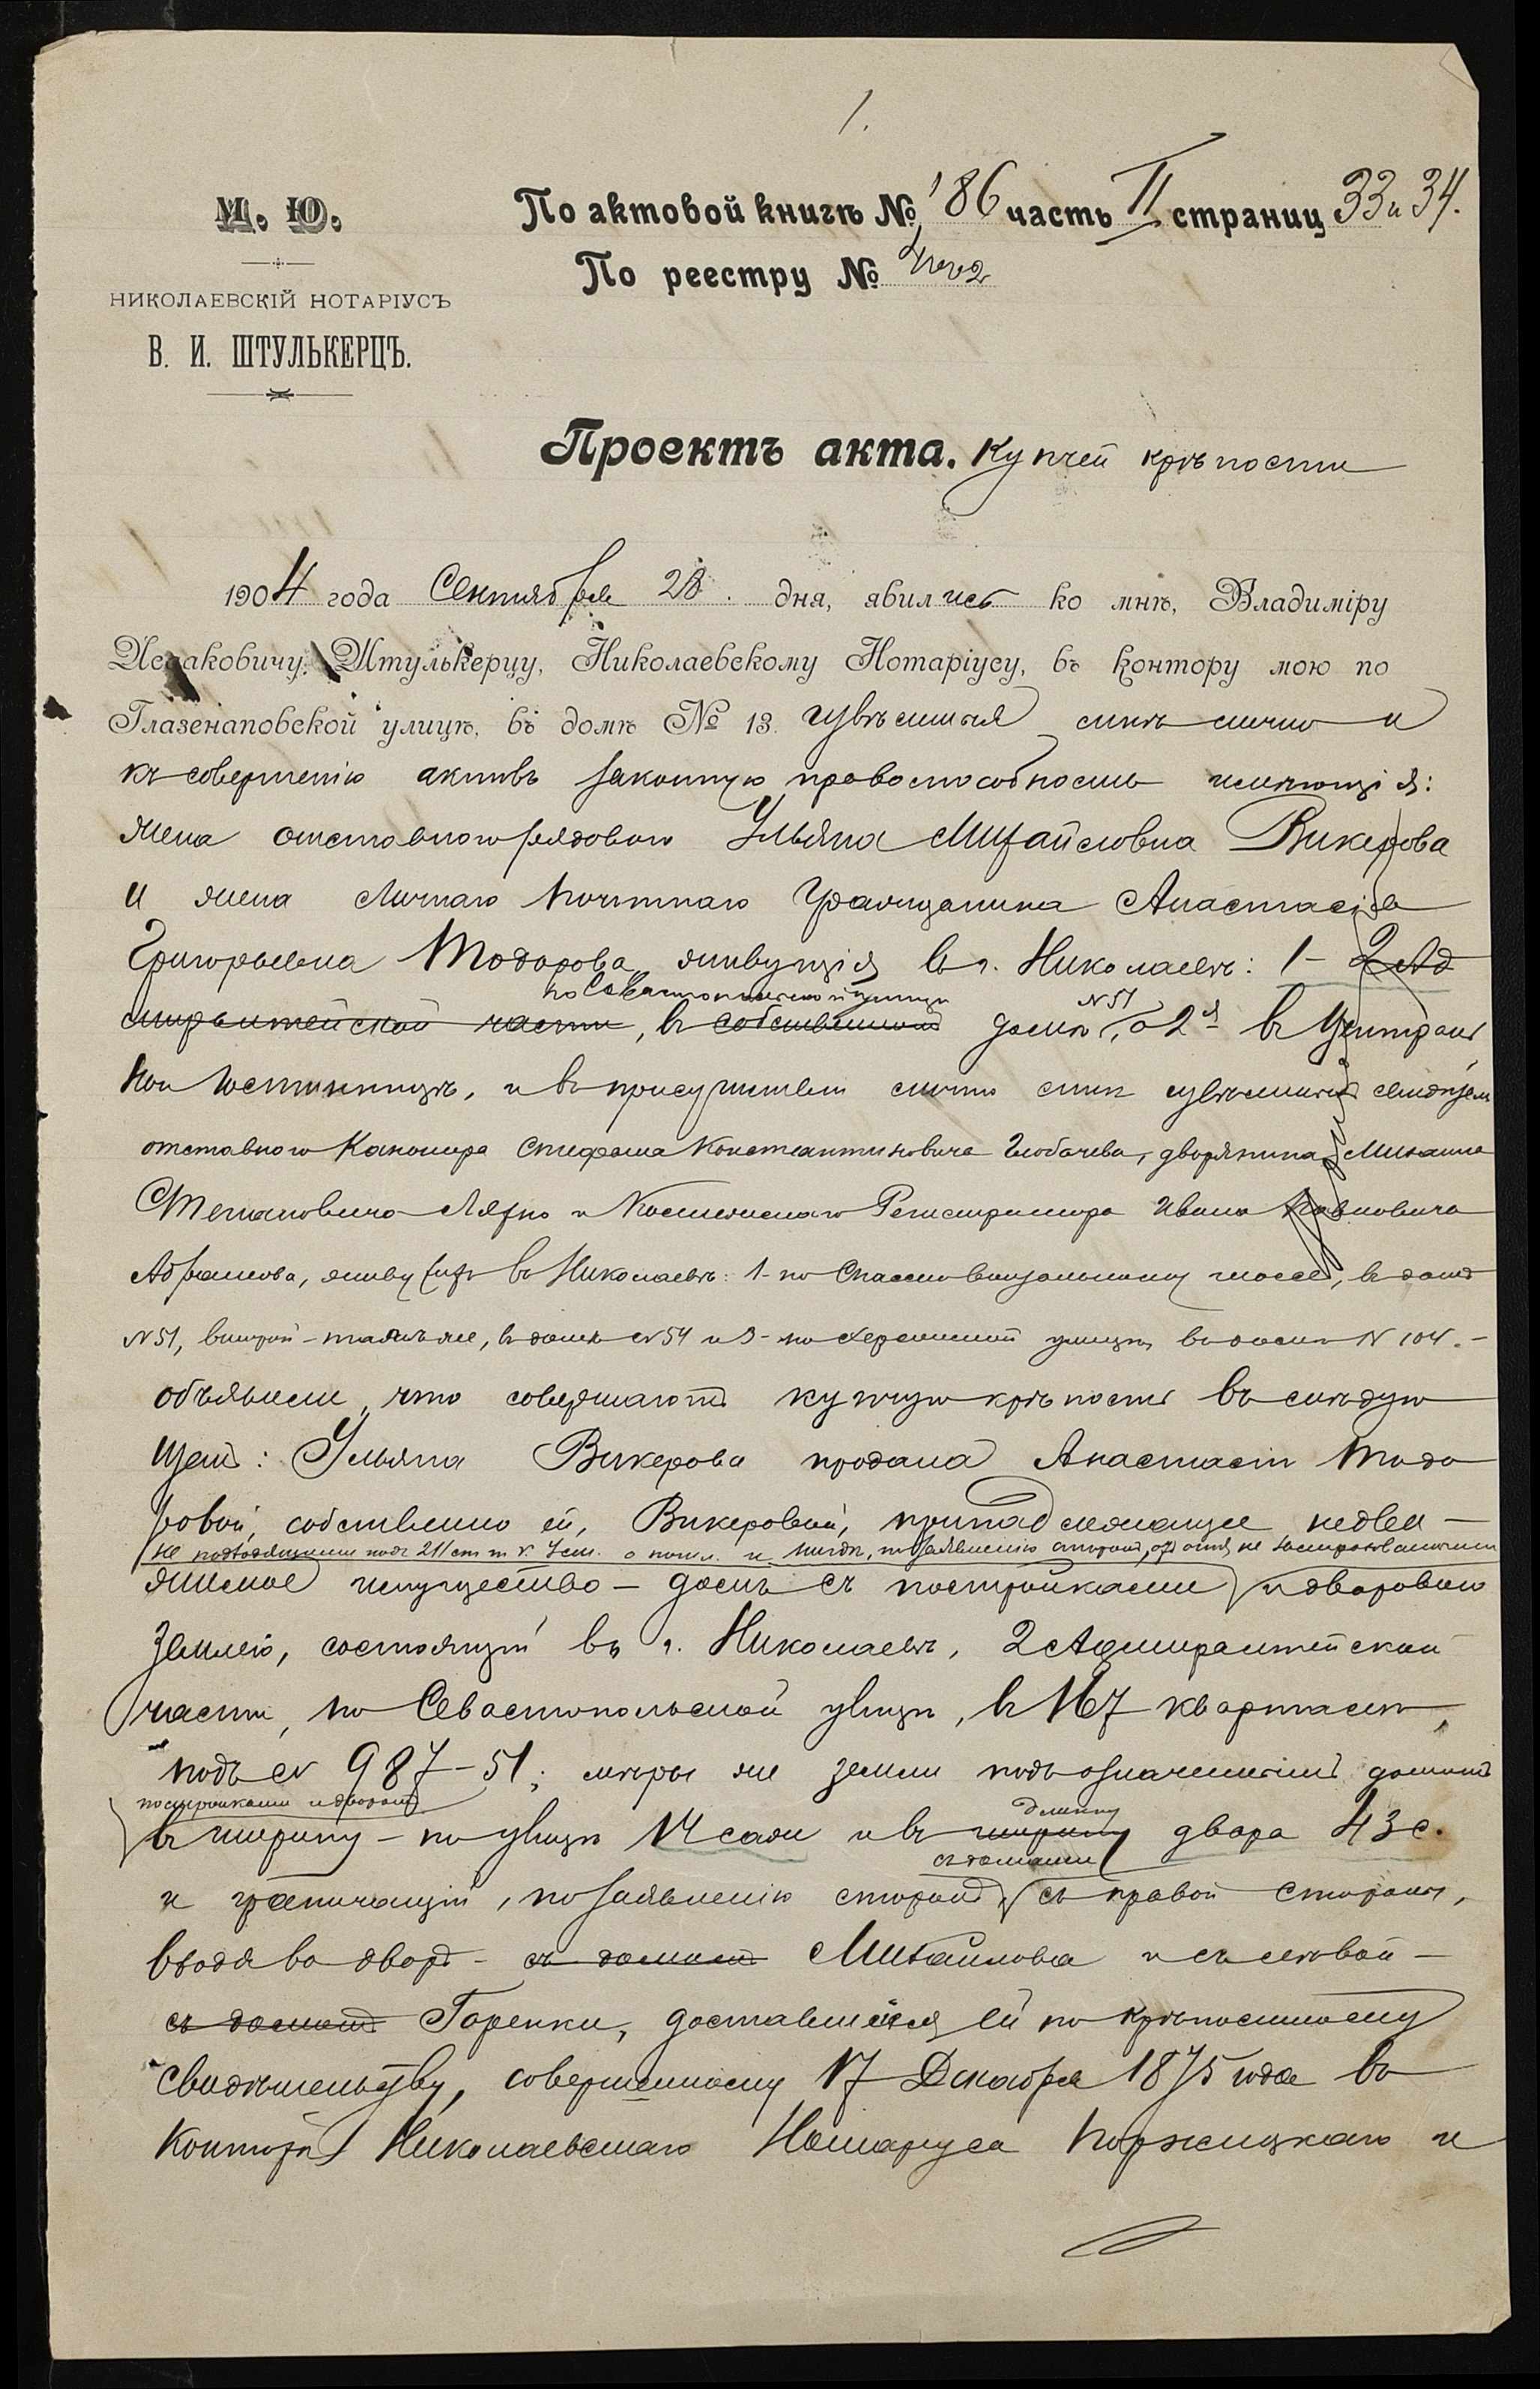 1.
М. Ю.
НИКОЛАЕВСКІЙ НОТАРІУСЪ
В. И. ШТУЛЬКЕРЦЪ.
По актовой книгѣ № 186 часть II страниц 33 и 34.
По реестру №
Проектъ акта. купчей крѣпости
1904 года Сентября 28. дня, явились ко мнѣ, Владиміру
Исааковичу Штулькерцу, Николаевскому Нотаріусу, въ контору мою по
Глазенаповской улицѣ, въ домѣ № 13. извѣстныя мнѣ лично и
къ совершенію актовъ законную правоспособность имѣющія:
жена отставного рядового Ульяна Михайловна Викерова
и жена личнаго почетнаго гражданина Анастасія
Григорьевна Тодорова, живущія въ г. Николаевѣ: 1- 2 Ад
по Севастопольской улицѣ № 51
миралтейской части, въ собственном домѣ, а 2я въ Централь
ной гостинницѣ, и въ присутствіи лично мнѣ извѣстных свидѣтелей
отставного Канонира Стефана Константиновича Глобачева, дворянина Михаила
Степановича и Коллежскаго Регистратора Ивана Павловича
Абрамова, живущих въ Николаевѣ: 1- по шоссе, въ домѣ
№ 51, второй - тамъ же, въ домѣ № 54 и 3- по Херсонской улицѣ въ домѣ № 104.-
объявили, что совершаютъ купчую крѣпость въ слѣдую
щем: Ульяна Викерова продала Анастасіи Тодо
ровой, собственно ей, Викеровой, принадлежащее недви-
не подходящими подъ 211 ст. т. V. Уст. о пошл. и нигдѣ, по заявленію сторон, от огня не застрахованными
жимое имущество - домъ съ постройками и дворовою
землею, состоящій въ г. Николаевѣ, 2 Адмиралтейской
части, по Севастопольской улицѣ, въ 167 кварталѣ,
подъ № 987-51; мѣры же земли подъ означеннымъ домомъ
постройками и двором
въ ширину - по улицѣ 14 саж и въ ширину длину двора 43 с.
съ домами
и граничащій, по заявленію сторон, съ правой стороны,
входя во двор - съ домом Михайлова и съ лѣвой -
съ домом Горенки, доставшійся ей по крѣпостному
свидѣтельству, совершенному 17 Декабря 1875 года въ
Конторѣ Николаевскаго Нотаріуса Поржицкаго и